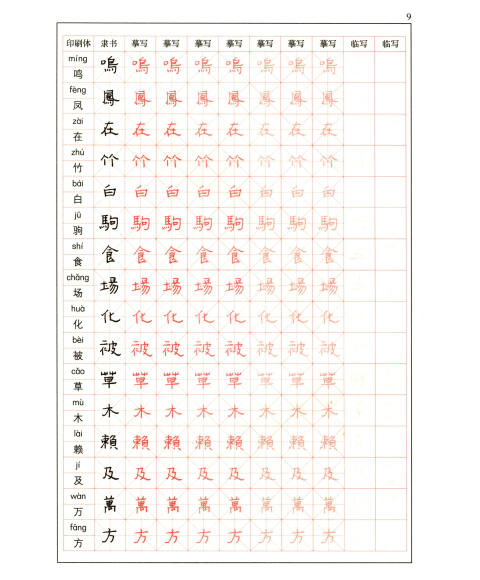 9
印刷体 隶书 摹写 摹写 摹写 摹写 摹写 摹写 摹写 临写 临写
míng
鸣 鳴 鳴 鳴 鳴 鳴 鳴 鳴 鳴
fèng
凤 鳳 鳳 鳳 鳳 鳳 鳳 鳳 鳳
zài
在 在 在 在 在 在 在 在 在
zhú
竹 竹 竹 竹 竹 竹 竹 竹 竹
bái
白 白 白 白 白 白 白 白 白
jū
驹 駒 駒 駒 駒 駒 駒 駒 駒
shí
食 食 食 食 食 食 食 食 食
chǎng
场 場 場 場 場 場 場 場 場
huà
化 化 化 化 化 化 化 化 化
bèi
被 被 被 被 被 被 被 被 被
cǎo
草 草 草 草 草 草 草 草 草
mù
木 木 木 木 木 木 木 木 木
lài
赖 賴 賴 賴 賴 賴 賴 賴 賴
jí
及 及 及 及 及 及 及 及 及
wàn
万 萬 萬 萬 萬 萬 萬 萬 萬
fāng
方 方 方 方 方 方 方 方 方